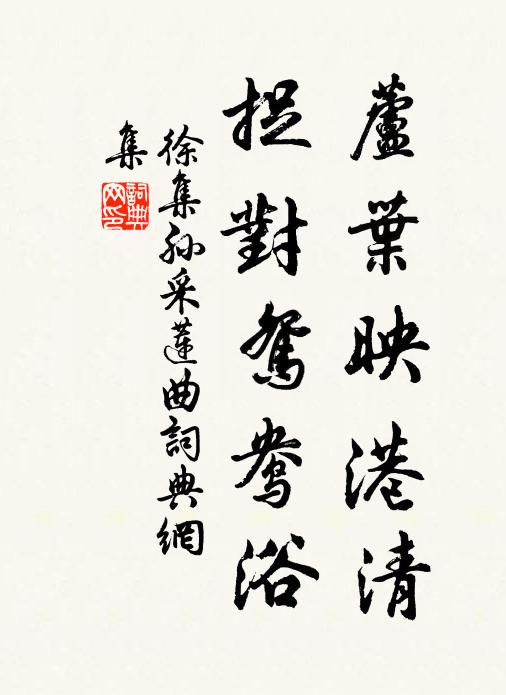 蘆葉映港清
捉對鴛鴦浴
徐集孫采蓮曲詞典網
集
詞典網印